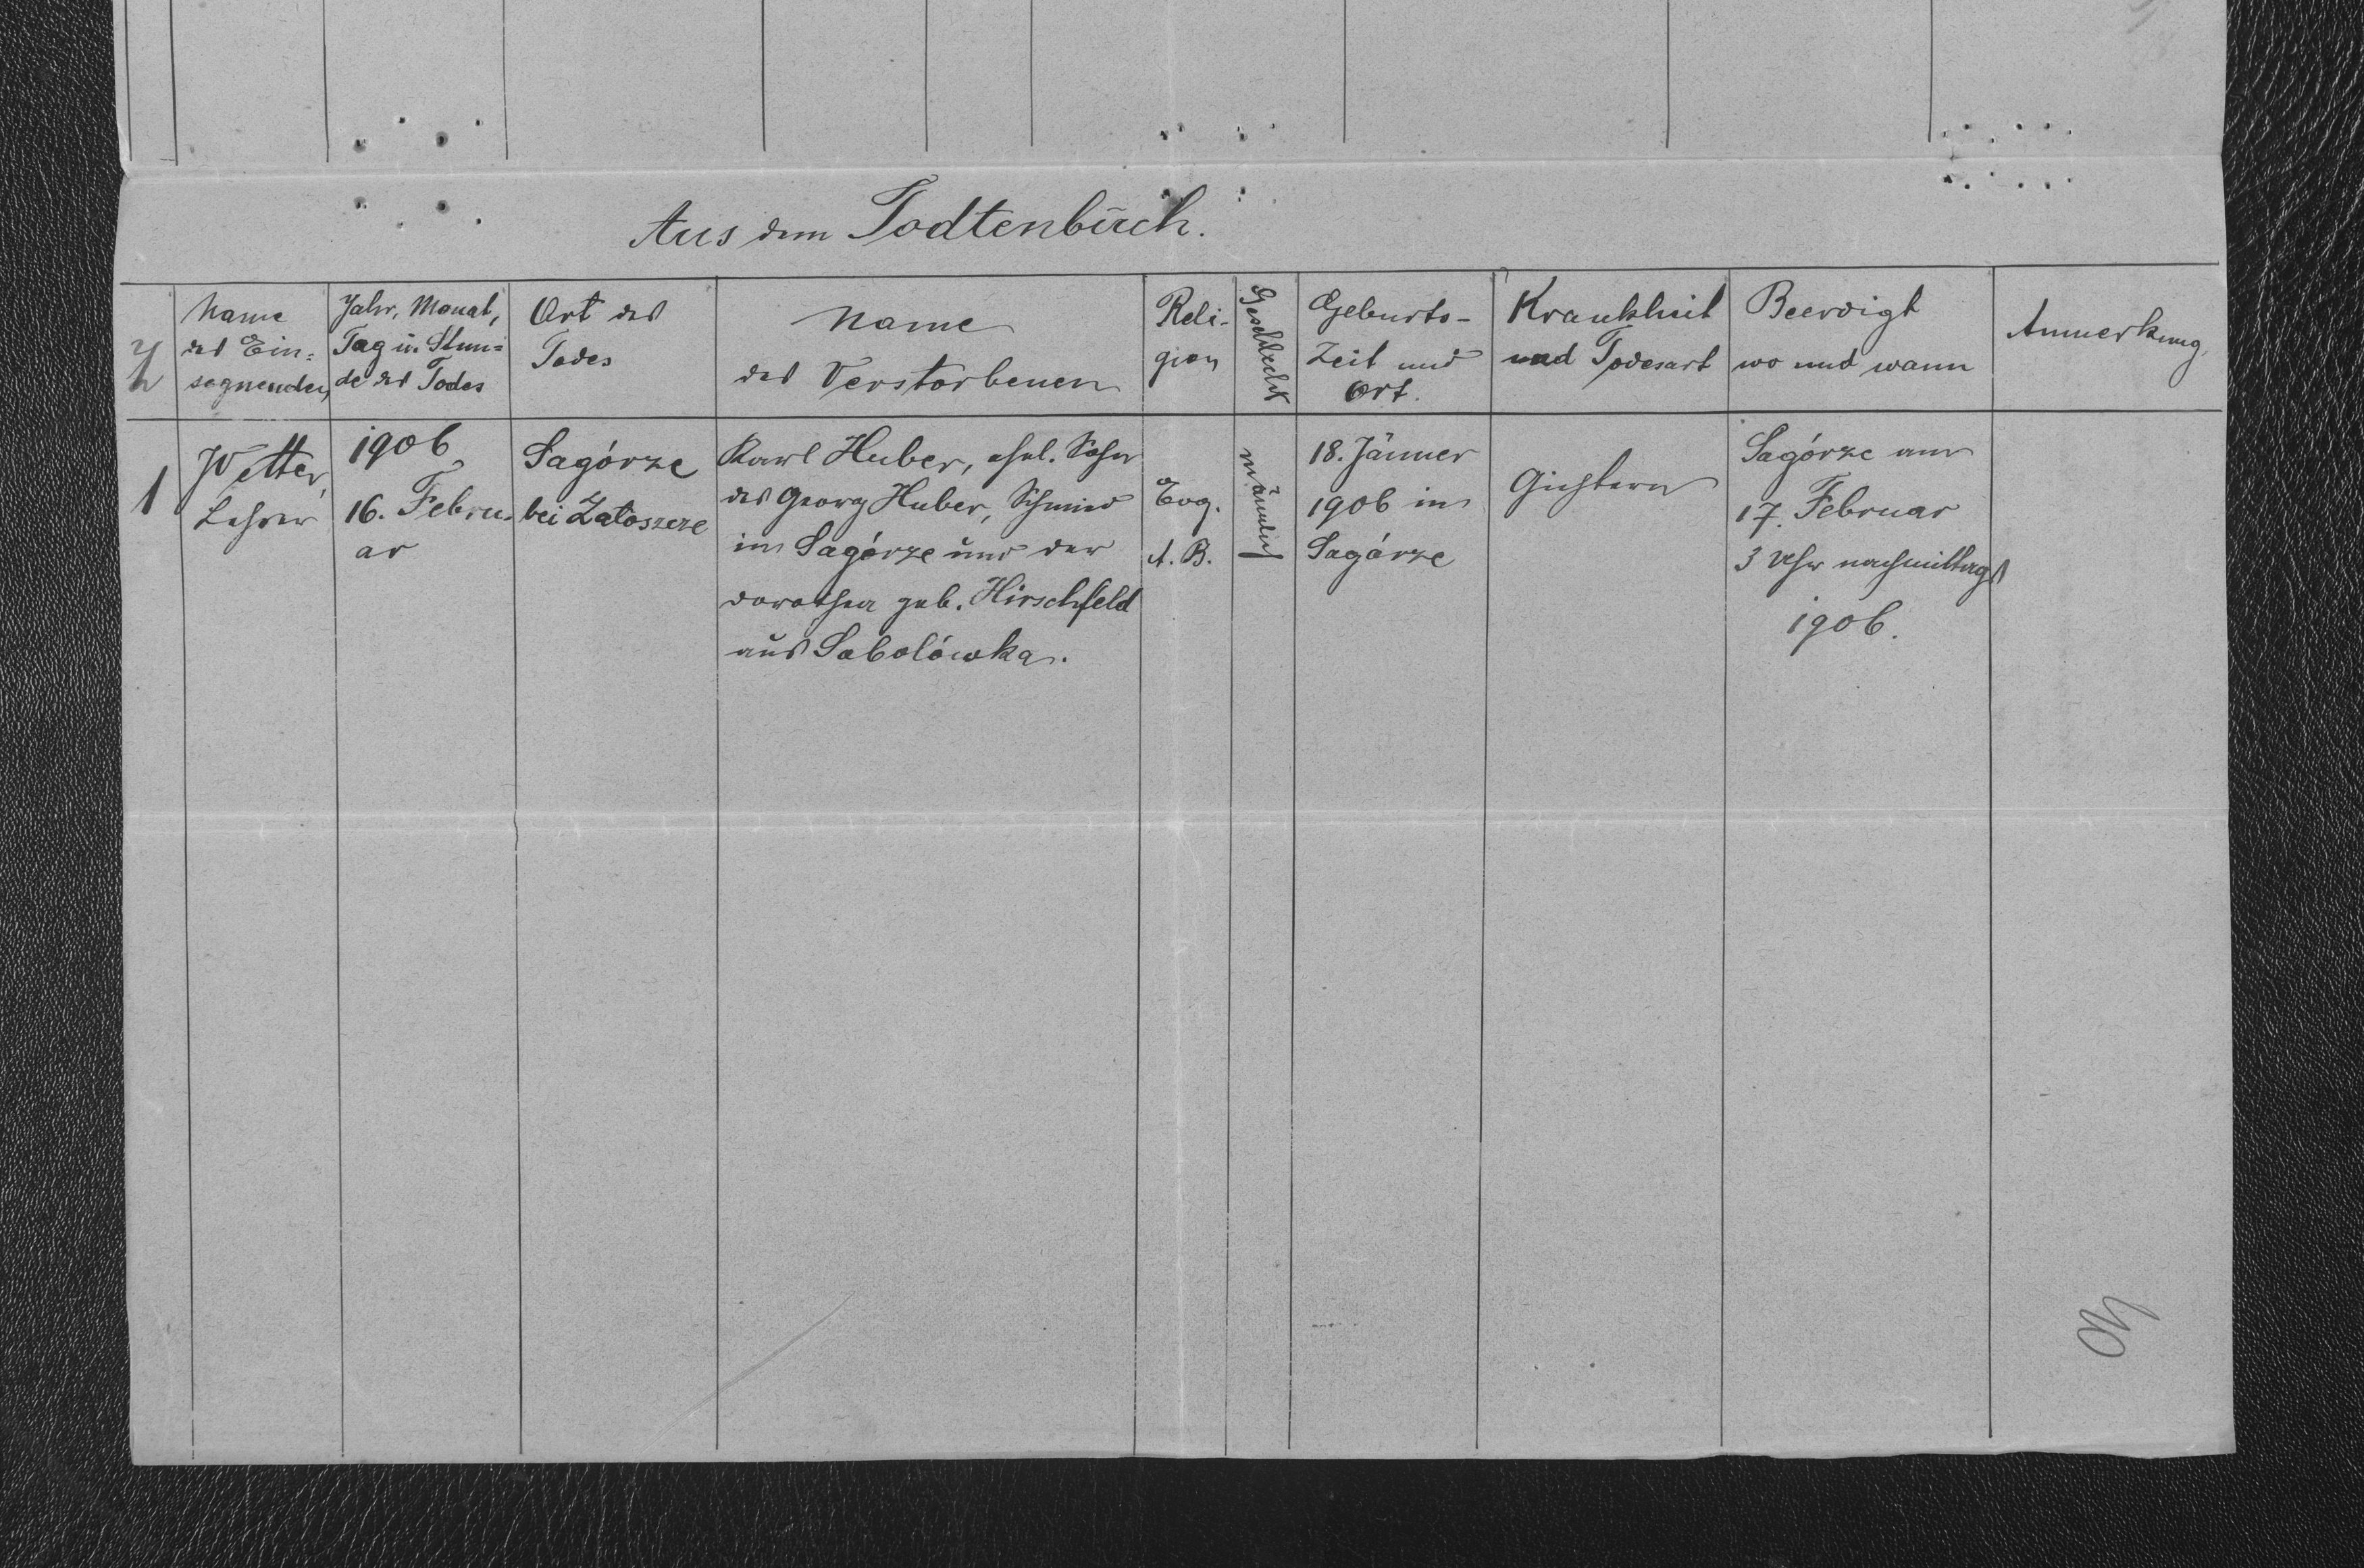 Aus dem Todtenbuch.
Name
des Ein-
segnenden
Jahr, Monat,
Tag u. Stun-
de des Todes
Ort des
Todes
Name
des Verstorbenen
Reli-
gion
Geschlecht
Geburts-
Zeit und
Ort.
Krankheit
und Todesart
Beerdigt
wo und wann
Anmerkung
1
Wetter,
Lehrer
1906
16. Febru-
ar
Sagórze
bei Zaloszcze
Karl Huber, ehel. Sohn
des Georg Huber, Schmied
in Sagórze und der
Dorothea geb. Hirschfeld
aus Sabolówka.
Evg.
A. B.
männlich
18. Jänner
1906 in
Sagórze
Gichtern
Sagórze am
17. Februar
3 Uhr nachmittags
1906.